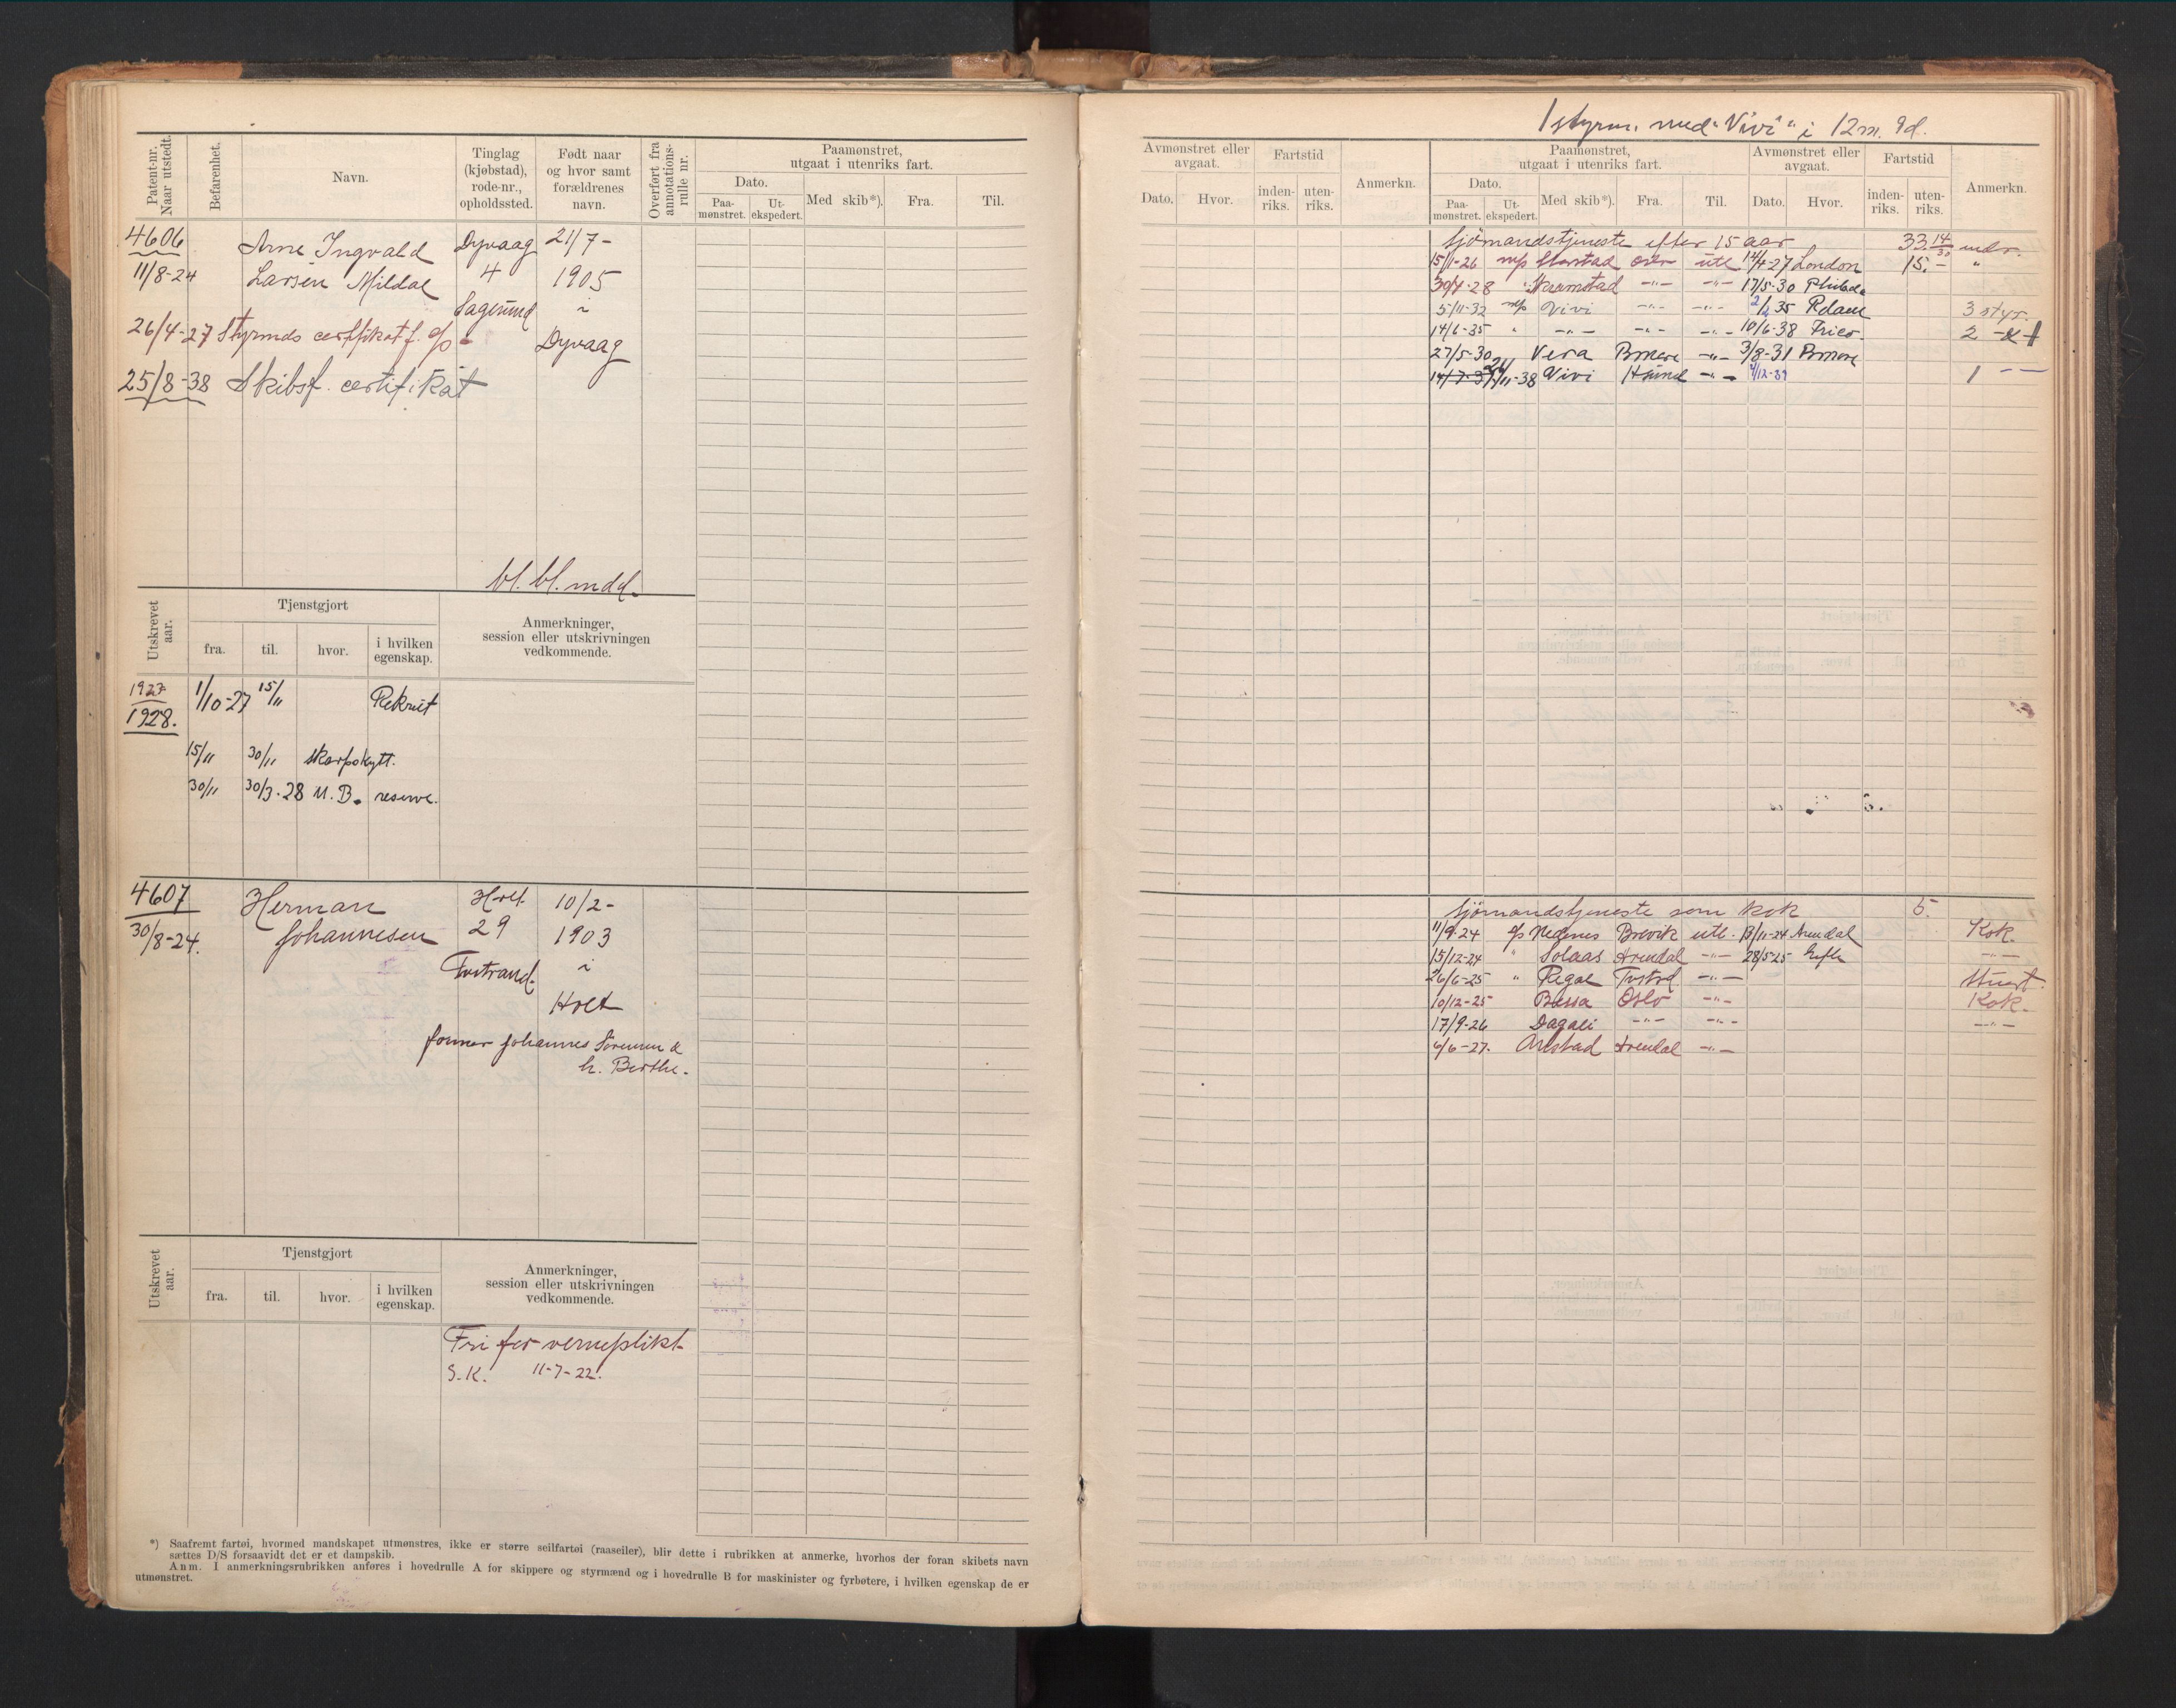 Patent-nr. Naar utstedt.
Befarenhet.
Navn.
Tinglag (kjøbstad), rode-nr., opholdssted.
Født naar og hvor samt forældrenes navn.
Overført fra annotations-rulle nr.
Paamønstret, utgaat i utenriks fart.
Dato.
Paa-mønstret.
Ut-ekspedert.
Med skib*).
Fra.
Til.
4606
11/8-24
Arne Ingvald
Larsen Mildal
Dyvaag
4
Sagesund
21/7-
1905
i
Dyvaag
26/4-27 Styrmds certifikat f. d/s
25/8-38 Skibsf. certifikat
bl. bl. mdd.
Utskrevet aar.
Tjenstgjort
fra.
til.
hvor.
i hvilken egenskap.
Anmerkninger, session eller utskrivningen vedkommende.
1927
1928.
1/10-27 15/11 Rekrut
15/11 30/11 skarpskytt.
30/11 30/3-28 M.B. reserve.
4607
30/8-24.
Herman
Johannesen
Holt
29
Tvstrand.
10/2-
1903
i
Holt
Johannes Sørensen &
h. Berthe.
Utskrevet aar.
Tjenstgjort
fra.
til.
hvor.
i hvilken egenskap.
Anmerkninger, session eller utskrivningen vedkommende.
Fri for verneplikt
S.K. 11-7-22.
*) Saafremt fartøi, hvormed mandskapet utmønstres, ikke er større seilfartøi (raaseiler), blir dette i rubrikken at anmerke, hvorhos der foran skibets navn
sættes D/S forsaavidt det er et dampskib.
Anm. I anmerkningsrubrikken anføres i hovedrulle A for skippere og styrmænd og i hovedrulle B for maskinister og fyrbøtere, i hvilken egenskap de er
utmønstret.
1 styrm. med "Vivi" i 12 m. 9d.
Avmønstret eller avgaat.
Dato.
Hvor.
Fartstid
inden-riks.
uten-riks.
Anmerkn.
Paamønstret, utgaat i utenriks fart.
Dato.
Paa-mønstret.
Ut-ekspedert.
Med skib*).
Fra.
Til.
Avmønstret eller avgaat.
Dato.
Hvor.
Fartstid
inden-riks.
uten-riks.
Anmerkn.
Sjømandstjeneste efter 15 aar 33 14/30 mdr.
15/1-26 m/s Storstad Oslo utl 14/4-27 London 15.- "
30/4-28 " -"- -"- 17/5-30
5/11-32 m/s Vivi -"- -"- 35 Rdam 3 styr.
14/6-35 " -"- -"- -"- 10/6-38 2
27/5-30 Vera -"- 3/8-31
14/7-37 11-38 Vivi -"- 1/12-39 1 -"-
Sjømandstjeneste som kok 5.
11/9-24 d/s Brevik utl. 13/11-24 Arendal Kok.
15/12-24 " Solaas Arendal -"- 28/5-25 Gefle -"-
26/6-25 " Regal -"- Stuert.
10/12-25 Bessa Oslo -"- Kok.
17/9-26 Dagali -"- -"- -"-
6/6-27. Arendal -"-